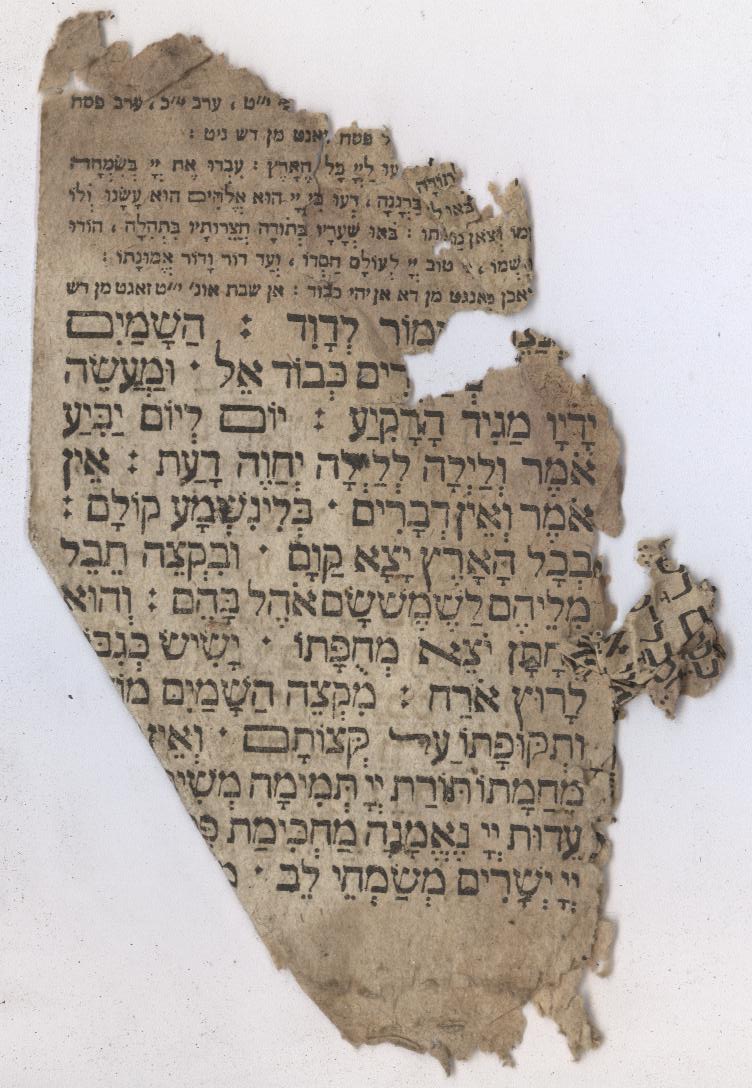 י״ט , ערב י״כ , ערב פסח
פסח יאנט מן דש ניט :
לַיְיָ כָּל הָאָרֶץ : עִבְדוּ אֶת יְיָ בְּשִׂמְחָה
תוֹדָה
בֹּאוּ בִּרְנָנָה , דְּעוּ כִּי יְיָ הוּא אֱלֹהִים הוּא עָשָׂנוּ וְלוֹ
וְצֹאן : בֹּאוּ שְׁעָרָיו בְּתוֹדָה חֲצֵרוֹתָיו בִּתְהִלָּה , הוֹדוּ
שְׁמוֹ , טוֹב יְיָ לְעוֹלָם חַסְדּוֹ , וְעַד דּוֹר וָדוֹר אֱמוּנָתוֹ :
פאנגט מן דא אן יהי כבוד : אן שבת אונ׳ י״ט זאגט מן דש
לְדָוִד : הַשָּׁמַיִם
כְּבוֹד אֵל · וּמַעֲשֵׂה
יָדָיו מַגִּיד הָרָקִיעַ : יוֹם לְיוֹם יַבִּיעַ
אֹמֶר וְלַיְלָה לְלַיְלָה יְחַוֶּה דָעַת : אֵין
אֹמֶר וְאֵין דְּבָרִים · בְּלִי נִשְׁמָע קוֹלָם :
בְּכָל הָאָרֶץ יָצָא קַוָּם · וּבִקְצֵה תֵבֵל
מִלֵּיהֶם לַשֶּׁמֶשׁ שָׂם אֹהֶל בָּהֶם : וְהוּא
יֹצֵא מֵחֻפָּתוֹ · יָשִׂישׂ
לָרוּץ אֹרַח : מִקְצֵה הַשָּׁמַיִם
וּתְקוּפָתוֹ עַל קְצוֹתָם · וְאֵין
מֵחַמָּתוֹ תּוֹרַת יְיָ תְּמִימָה
עֵדוּת יְיָ נֶאֱמָנָה מַחְכִּימַת
יְיָ יְשָׁרִים מְשַׂמְּחֵי לֵב ·